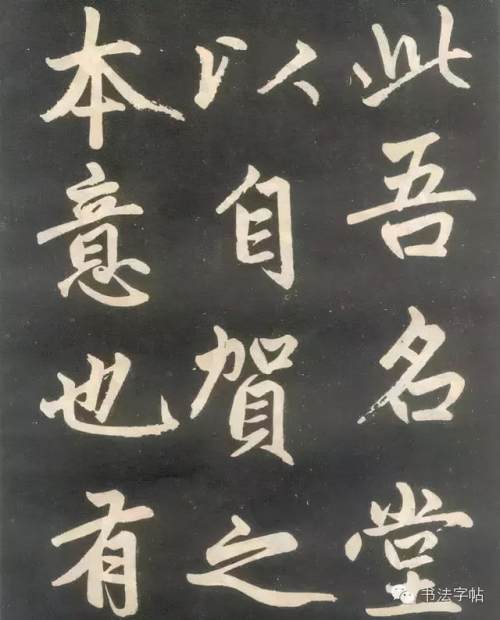 此吾名堂
以自賀之
本意也有
书法字帖